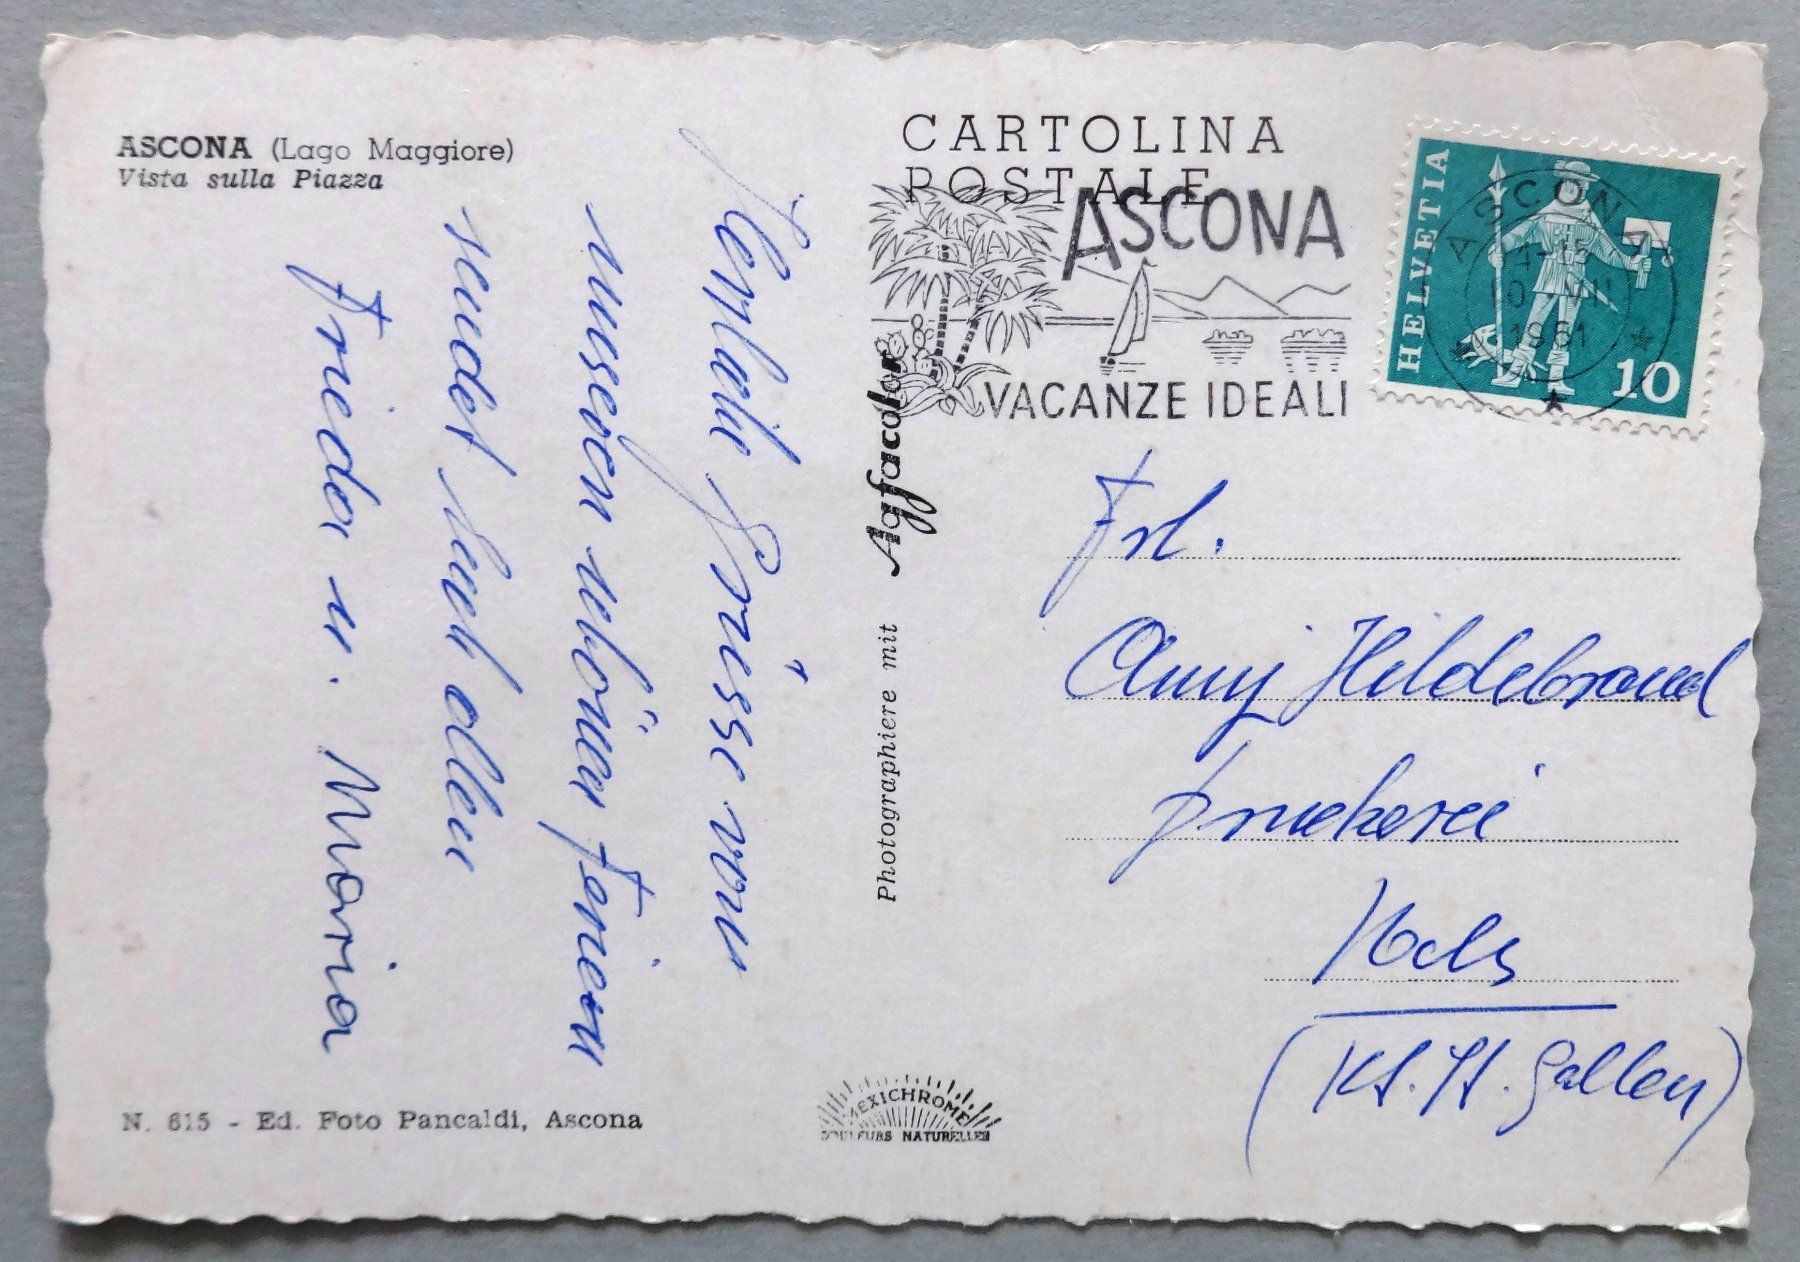 ASCONA (Lago Maggiore)
Vista sulla Piazza
Herzliche Grüsse von
unseren schönen Ferien
sendet Euch allen
Frieda u. Maria
N. 615 - Ed. Foto Pancaldi, Ascona
Photographiere mit Agfacolor
MEXICHROME
COULEURS NATURELLES
CARTOLINA
POSTALE
ASCONA
VACANZE IDEALI
HELVETIA
10
ASCONA
1961
Frl.
Anny Hildebrand
Druckerei
(Kt. St. Gallen)